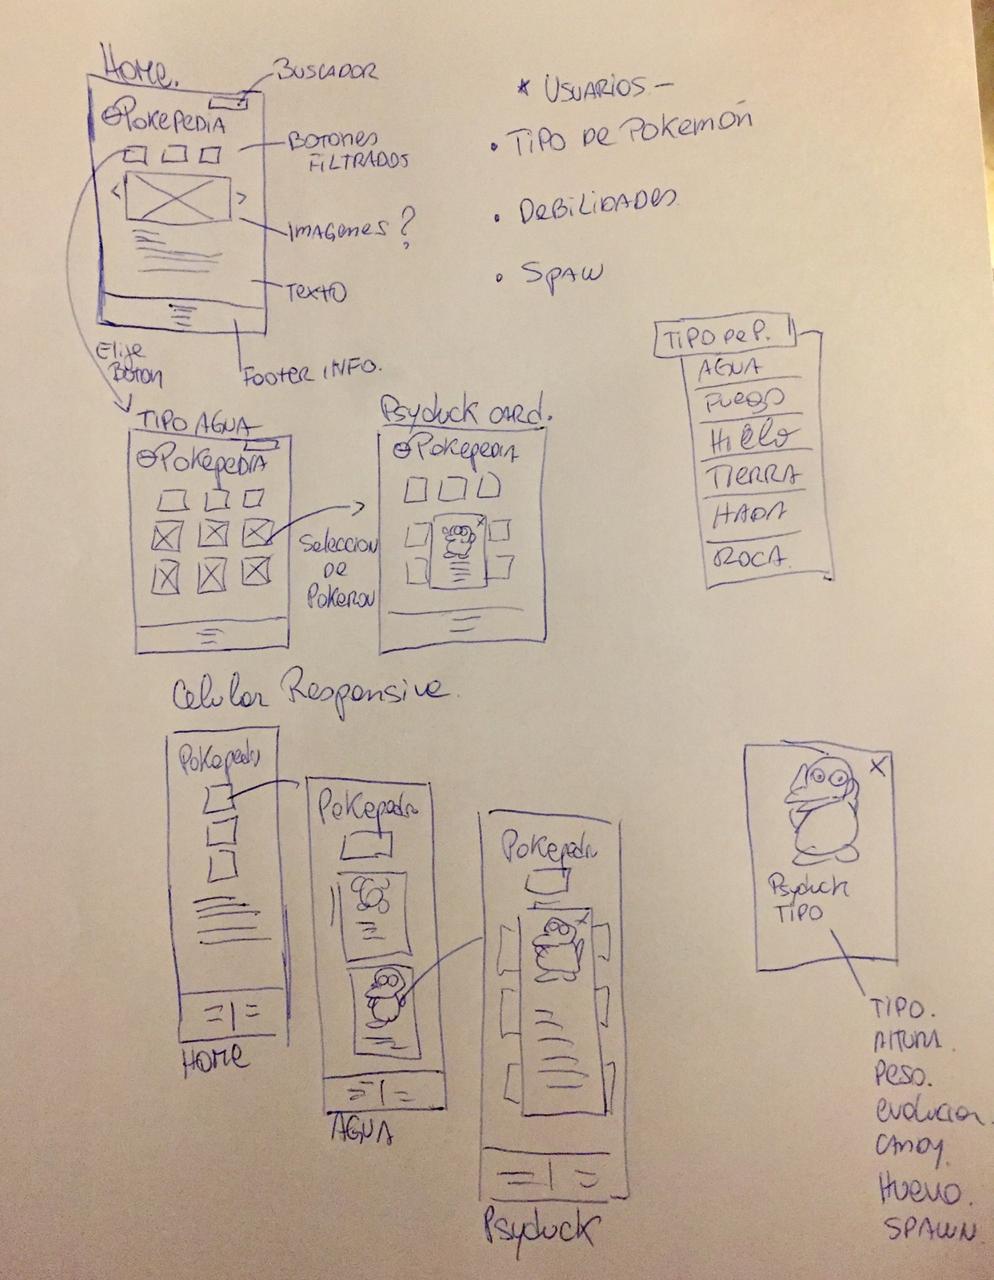 Home.
BUSCADOR
PokePEDIA
BOTONES
FILTRADOS
IMAGENES ?
TEXTO
FOOTER INFO.
Elije
BOTON
* USUARIOS —
• TIPO DE POKEMÓN
• DEBILIDADES
• SPAW
TIPO DE P.
AGUA
FUEGO
HIELO
TIERRA
HADA
ROCA
TIPO AGUA
PokePEDIA
Seleccion
DE
Psyduck CARD.
Pokepedia
Celular Responsive.
Pokepedi
Home
Pokepedi
AGUA
Pokepedi
Psyduck
X
Psyduck
TIPO
TIPO.
ALTURA.
PESO.
evolucion.
CANDY.
HUEVO.
SPAWN.